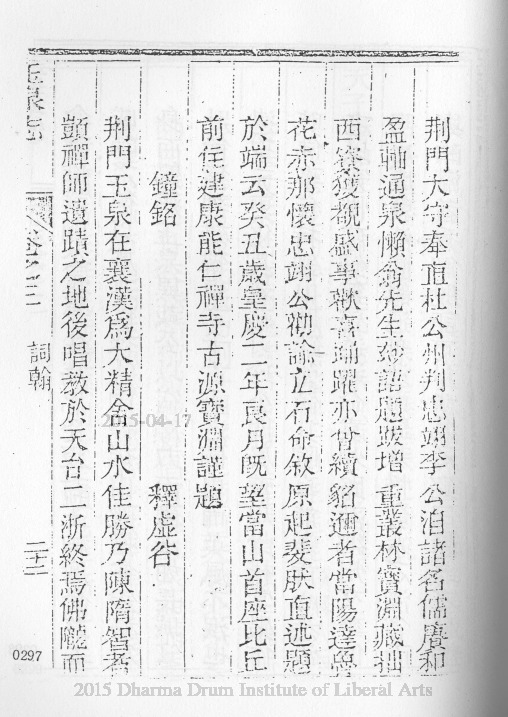 荆門大守奉直杜公州判忠翊李公洎諸名儒賡和
盈軸通泉懶翁先生妙語題跋增重叢林寶淵藏拙
西寮獲觀盛事歡喜踊躍亦甞續貂邇者當陽達魯
花赤那懷忠翊公刱諭立石命敘原起斐肰直述題
於端云癸丑歲皇慶二年良月旣望當山首座比丘
前住建康能仁禪寺古源寶淵謹題
鐘銘 釋虛谷
荆門玉泉在襄漢爲大精舍山水佳勝乃陳隋智者
顗禪師遺蹟之地後唱教於天台二浙終焉佛隴而
玉泉志 卷之三 詞翰 二十二
0297
2015-04-17
2015 Dharma Drum Institute of Liberal Arts